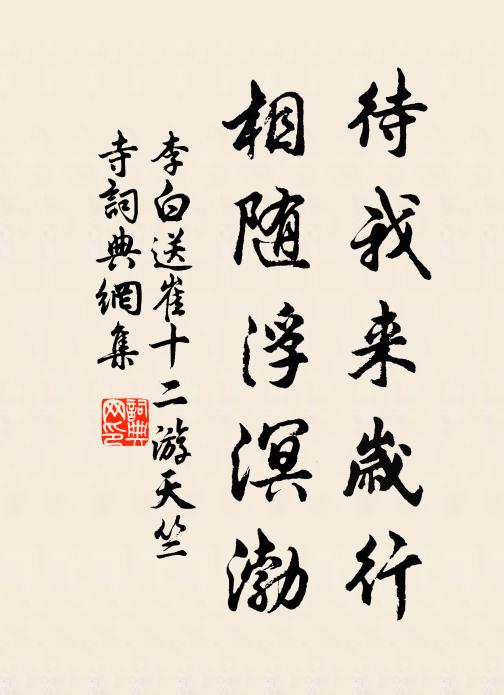 待我来歲行
相随浮溟渤
李白送崔十二游天竺
寺詞典網集
詞典
网印